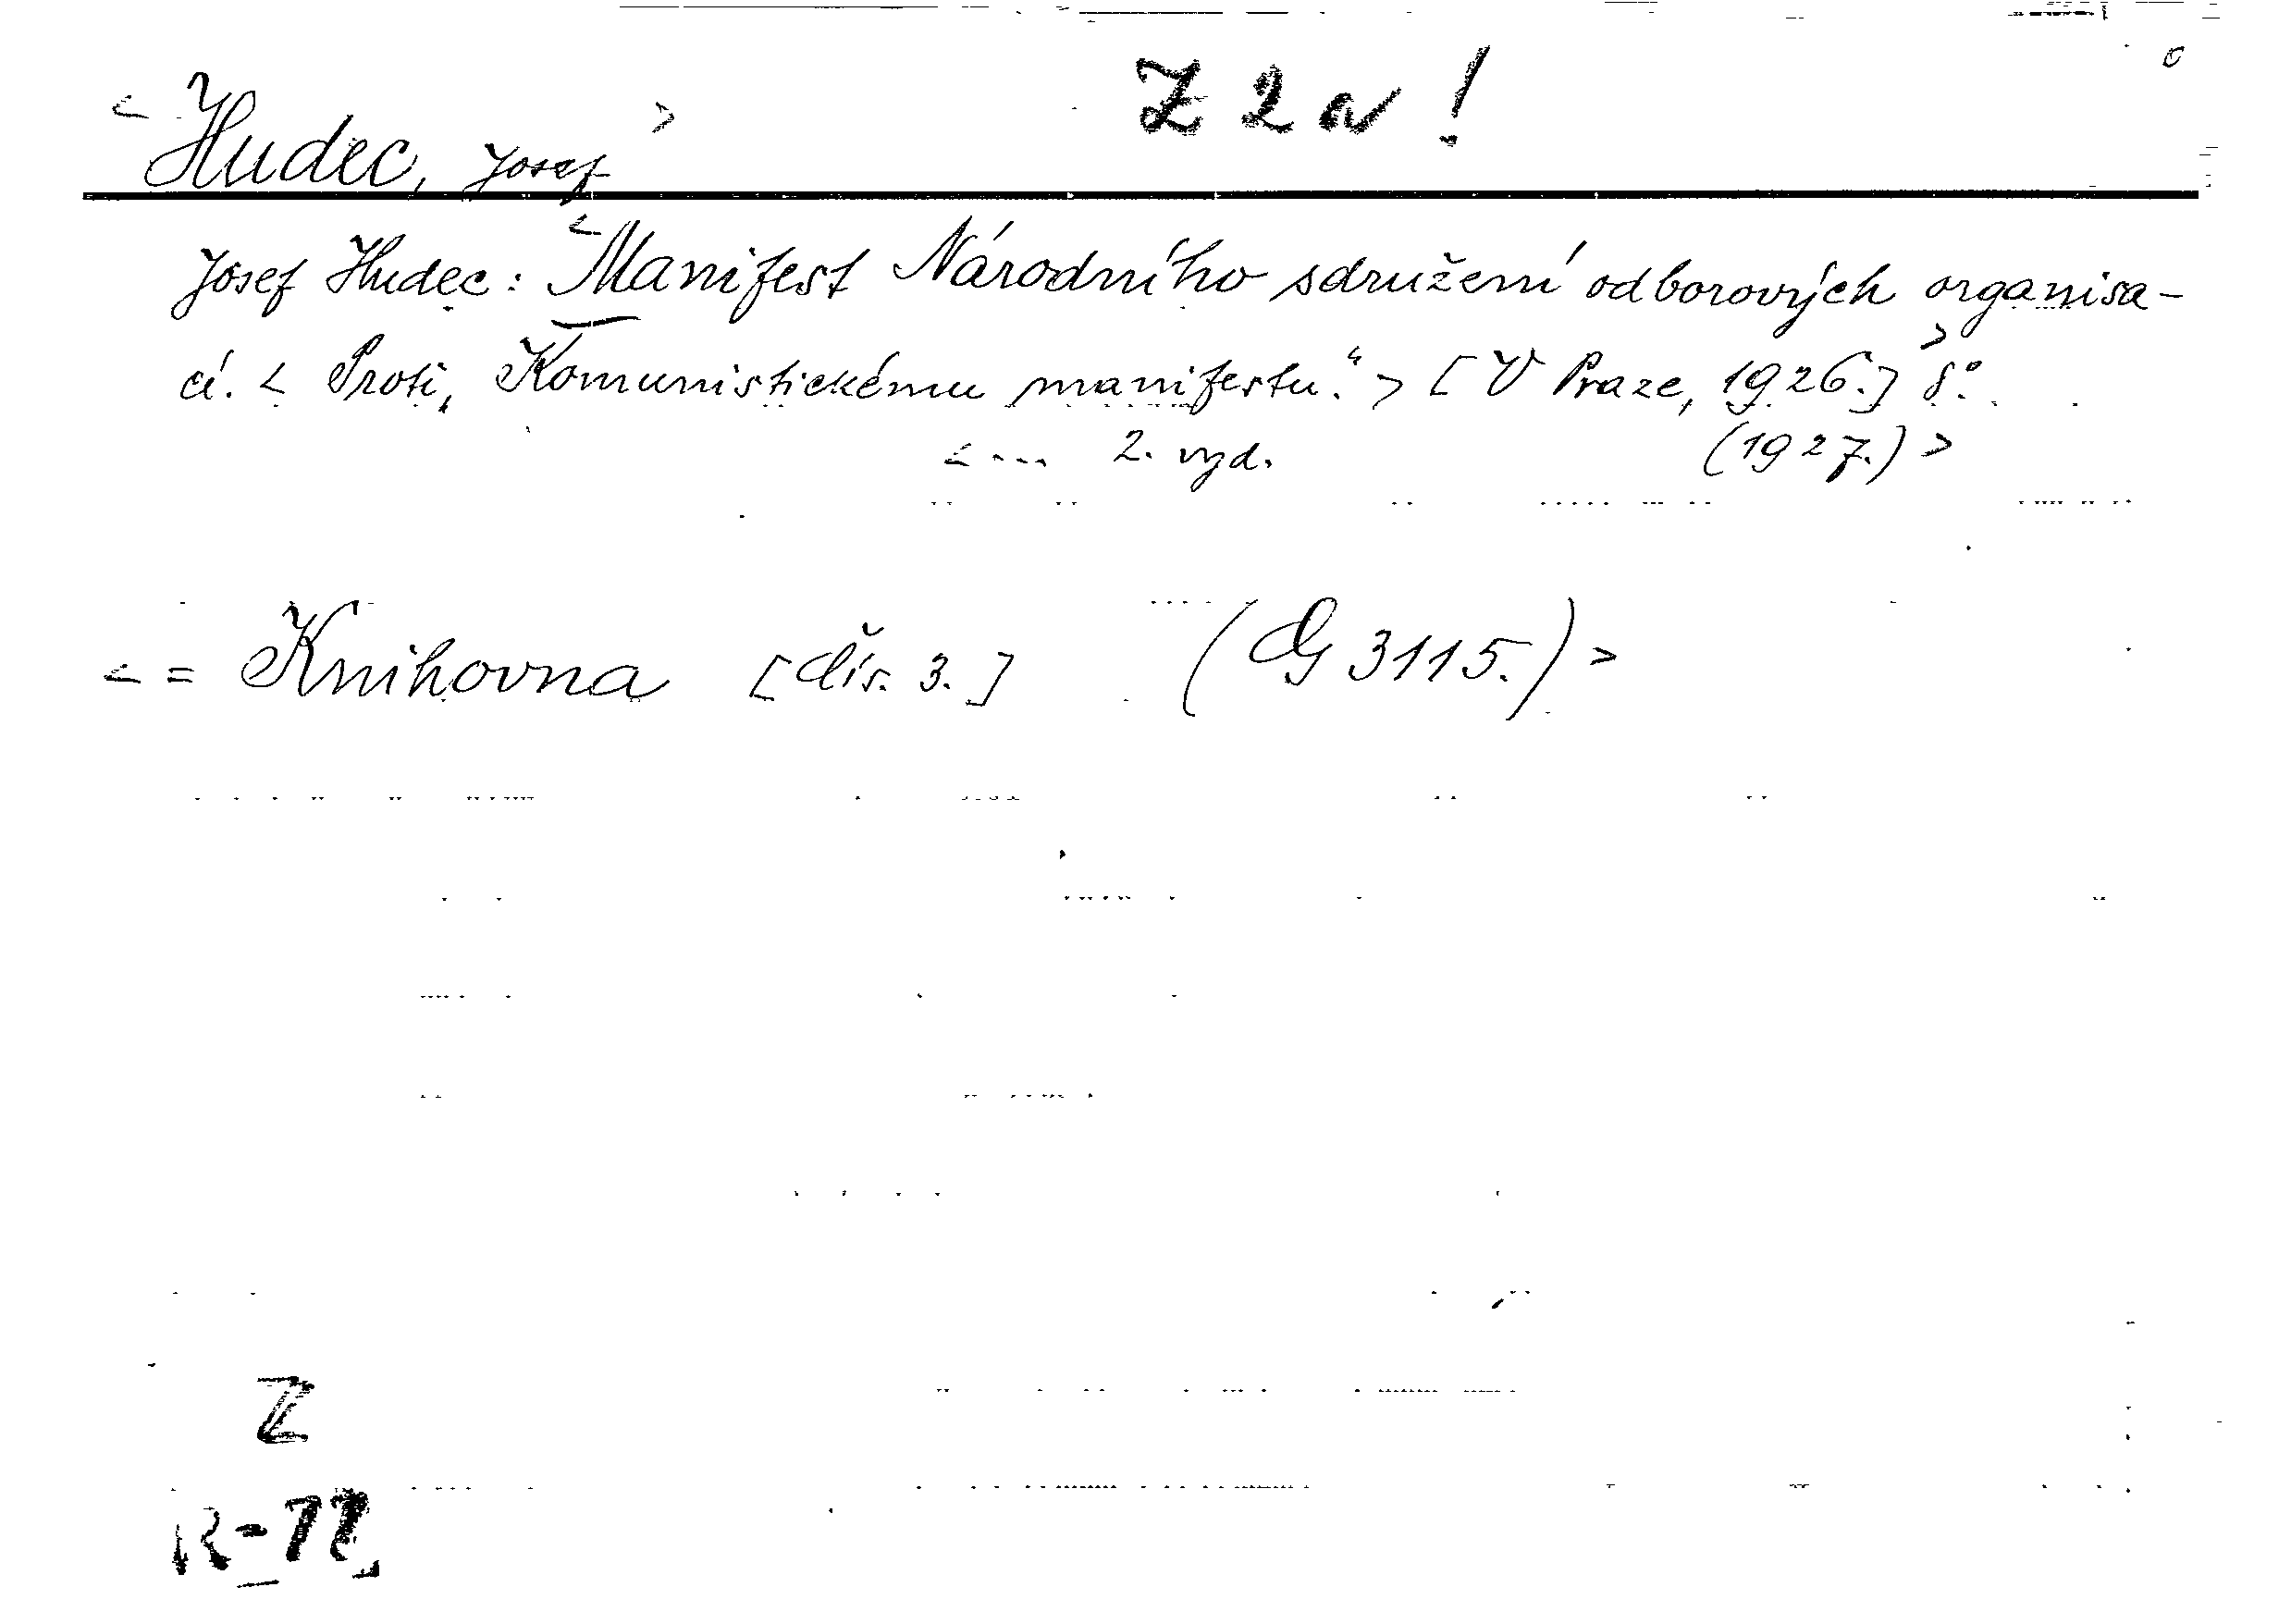 Z 2 a !
< Hudec, Josef >
Josef Hudec: <Manifest Národního sdružení odborových organisa-
cí. < Proti „Komunistickému manifestu.“ > [V Praze, 1926.] > 8°.
< ... 2. vyd. (1927.) >
< = Knihovna [čís. 3.] (G 3115.) >
Z